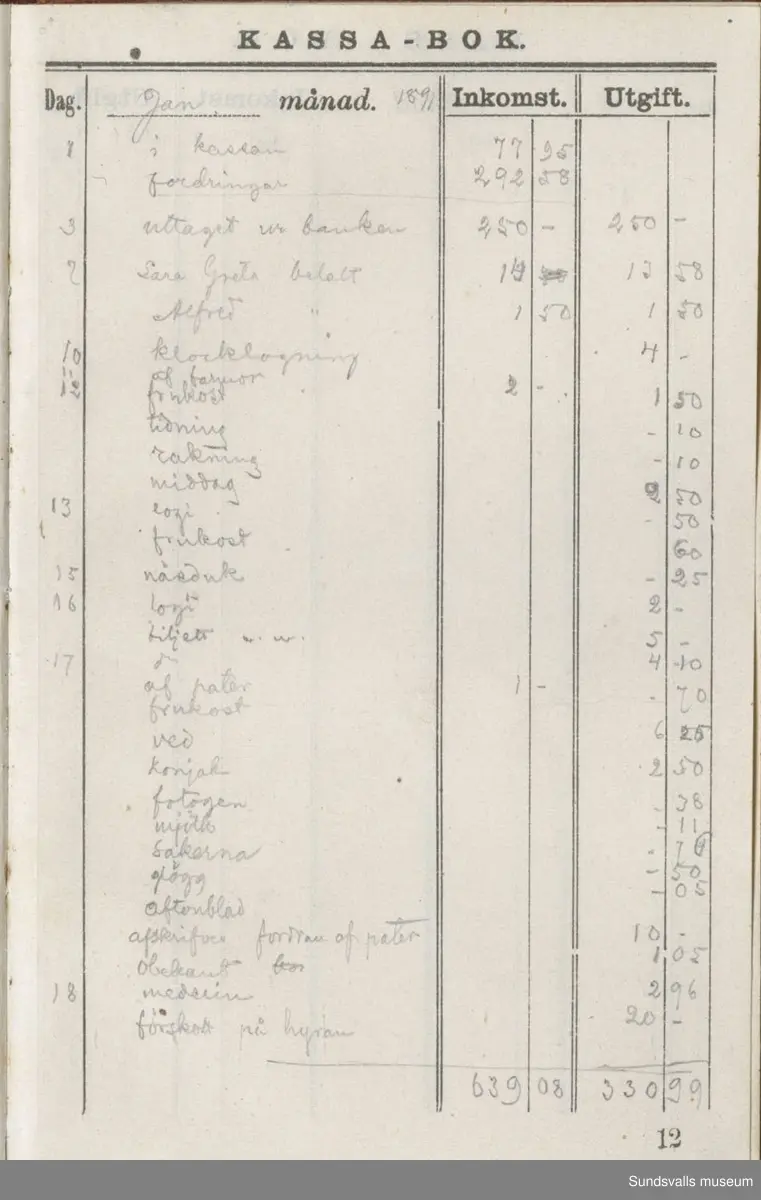 KASSA-BOK.
Dag. Jan månad. 1891 Inkomst. Utgift.
1 i kassan 77 95
fordringar 292 58
3 uttaget ur banken 250 - 250 -
7 Sara Greta betalt 14 13 58
Alfred " 1 50 1 50
10 klocklagning 4 -
11 af farmor 2 -
12 frukost 1 50
tidning - 10
rakning - 10
middag 2 50
13 logi - 50
frukost 60
15 näsduk - 25
16 logi 2 -
biljett 5 -
17 4 10
af pater 1 -
frukost - 70
ved 6 25
konjak 2 50
fotogen - 38
mjölk - 11
Sakerna - 79
glögg - 50
aftonblad - 05
afskrifves fordran af pater 10 -
Obekant 1 05
18 medicin 2 96
förskott på hyran 20 -
639 08 330 99
12
Sundsvalls museum